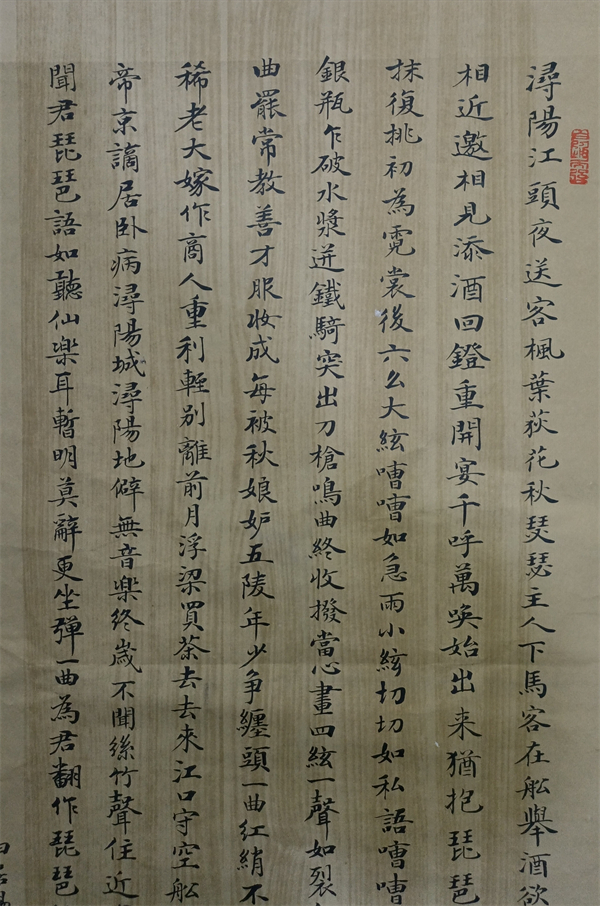 潯陽江頭夜送客楓葉荻花秋瑟瑟主人下馬客在舩舉酒欲
相近邀相見添酒回鐙重開宴千呼萬喚始出来猶抱琵琶
抹復挑初為霓裳後六幺大絃嘈嘈如急雨小絃切切如私語嘈嘈
銀瓶乍破水漿迸鐵騎突出刀槍鳴曲終收撥當心畫四絃一聲如裂
曲罷常教善才服妝成每被秋娘妒五陵年少争纏頭一曲红綃不
稀老大嫁作商人重利輕别離前月浮梁買茶去去來江口守空舩
帝京謫居卧病潯陽城潯陽地僻無音樂终歲不聞絲竹聲住近
聞君琵琶語如聽仙樂耳暫明莫辭更坐彈一曲為君翻作琵琶